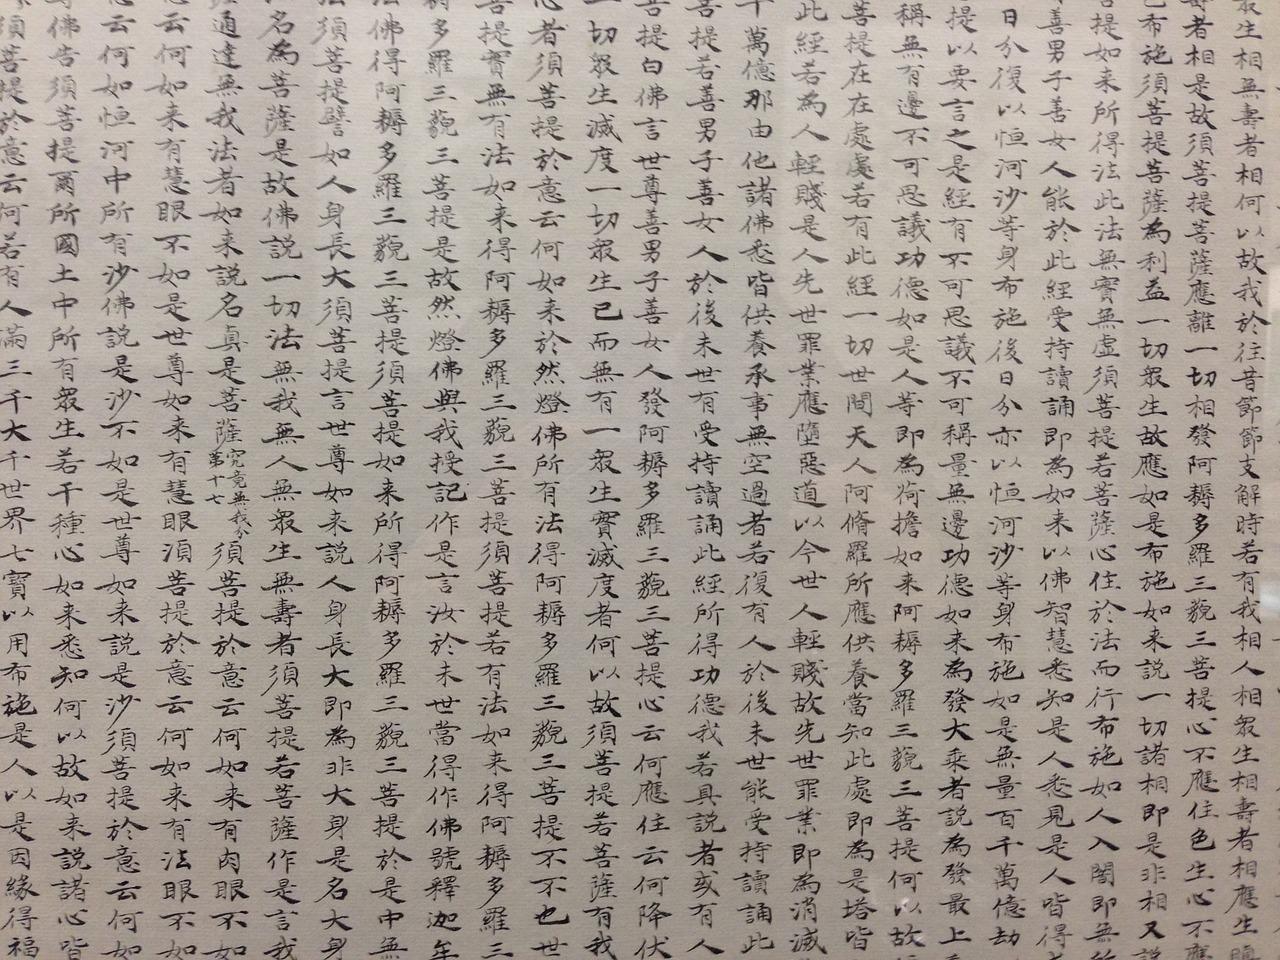 眾生相無壽者相何以故我於往昔節節支解時若有我相人相眾生相壽者相應生瞋
壽者相是故須菩提菩薩應離一切相發阿耨多羅三藐三菩提心不應住色生心不應
色布施須菩提菩薩為利益一切眾生故應如是布施如来説一切諸相即是非相又説
菩提如来所得法此法無實無虛須菩提若菩薩心住於法而行布施如人入闇即無所
善男子善女人能於此經受持讀誦即為如来以佛智慧悉知是人悉見是人皆得
日分復以恒河沙等身布施後日分亦以恒河沙等身布施如是無量百千萬億劫
提以要言之是經有不可思議不可稱量無邊功德如来為發大乘者説為發最上
稱無有邊不可思議功德如是人等即為荷擔如来阿耨多羅三藐三菩提何以故
菩提在在處處若有此經一切世間天人阿脩羅所應供養當知此處即為是塔皆
此經若為人輕賤是人先世罪業應墮惡道以今世人輕賤故先世罪業即為消滅
千萬億那由他諸佛悉皆供養承事無空過者若復有人於後末世能受持讀誦此
菩提若善男子善女人於後末世有受持讀誦此經所得功德我若具説者或有人
菩提白佛言世尊善男子善女人發阿耨多羅三藐三菩提心云何應住云何降伏
一切眾生滅度一切眾生已而無有一眾生實滅度者何以故須菩提若菩薩有我
心者須菩提於意云何如来於然燈佛所有法得阿耨多羅三藐三菩提不不也世
菩提實無有法如来得阿耨多羅三藐三菩提須菩提若有法如来得阿耨多羅三
耨多羅三藐三菩提是故然燈佛與我授記作是言汝於未世當得作佛號釋迦牟
佛得阿耨多羅三藐三菩提須菩提如来所得阿耨多羅三藐三菩提於是中無
須菩提譬如人身長大須菩提言世尊如来説人身長大即為非大身是名大身
名為菩薩是故佛説一切法無我無人無眾生無壽者須菩提若菩薩作是言我
通達無我法者如来説名真是菩薩究竟無我分第十七須菩提於意云何如来有肉眼不如
意云何如来有慧眼不如是世尊如来有慧眼須菩提於意云何如来有法眼不如
意云何如恒河中所有沙佛説是沙不如是世尊如来説是沙須菩提於意云何如
佛告須菩提爾所國土中所有眾生若干種心如来悉知何以故如来説諸心皆
須菩提於意云何若有人滿三千大千世界七寶以用布施是人以是因緣得福